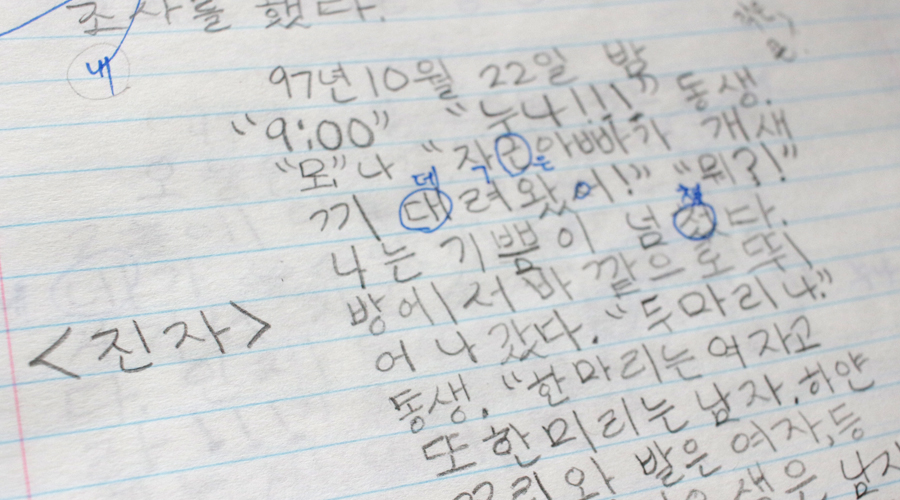 조사를 했다.
내
97년10월 22일 밤
“9:00” “누나!!!” 동생.
“모”나 “자근아빠가 개새
데 ㄱ 은 쳤
끼 대려왔어!” “뭐?!”
나는 기쁨이 넘첫다.
방에서 바깥으로 뛰
<진자>
어 나갔다. “두마리나.”
동생. “한마리는 여자고
또 한미리는 남자. 하얀
발은 여자, 등
색은 남자